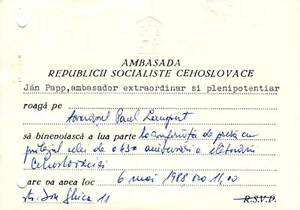 AMBASADA
REPUBLICII SOCIALISTE CEHOSLOVACE
Ján Papp, ambasador extraordinar si plenipotentiar
roagă pe
tovarăşul Paul Langfort
să binevoiască a lua parte la conferinţa de presă cu
prilejul celei de a 43-a aniversări a eliberării
Cehoslovaciei
care va avea loc 6 mai 1988, ora 11,00
str. Ion Ghica 11
R.S.V.P.